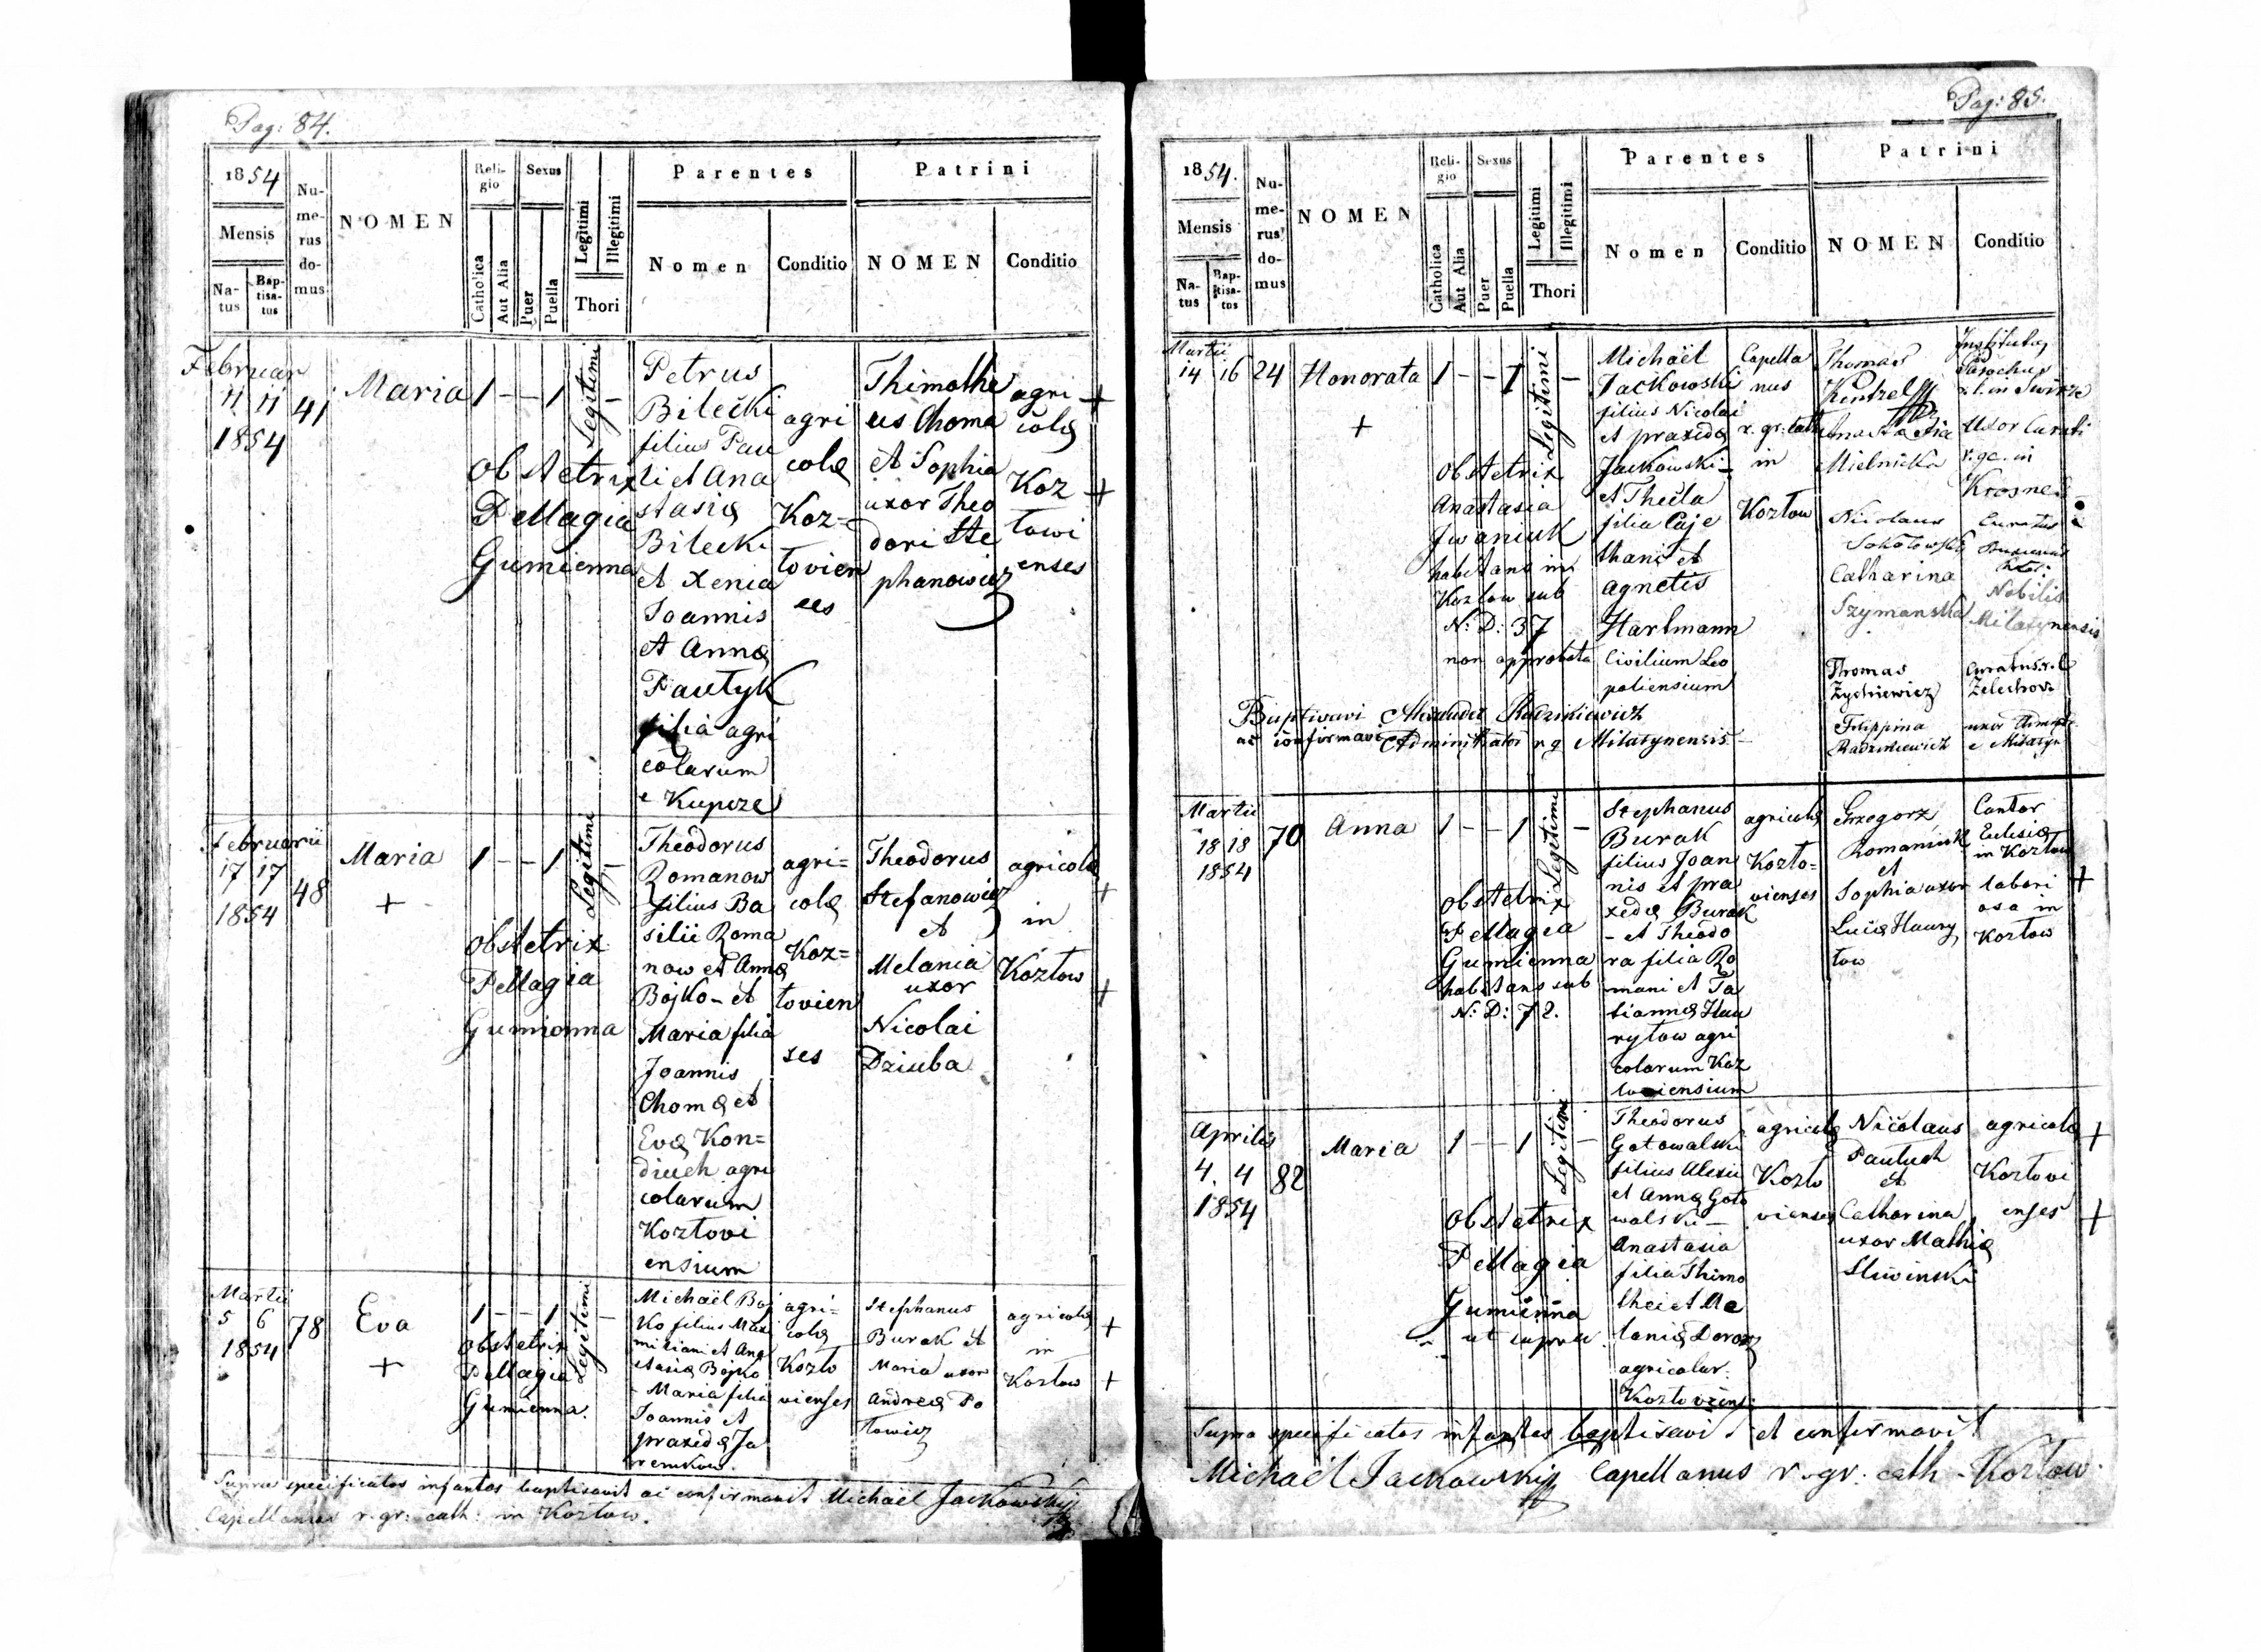 Pag: 84.
1854
Mensis
Na-
tus
Bap-
tisa-
tus
Nu-
me-
rus
do-
mus
NOMEN
Reli-
gio
Catholica
Aut Alia
Sexus
Puer
Puella
Legitimi
Illegitimi
Thori
Parentes
Nomen
Conditio
Patrini
NOMEN
Conditio
Februar
11 11
1854
41
Maria
1 - - 1
Legitimi
-
obstetrix
Pellagia
Gumienna
Petrus
Bilecki
filius Pau
li et Ana
stasiæ
Bilecki
et Xenia
Joannis
et Annæ
Pautyk
filia agri
colarum
e Kupcze
agri
colæ
Koz=
lovien
ses
Thimothe
us Choma
et Sophia
uxor Theo
dori Ste
phanowicz
agri +
colæ
Koz +
towi
enses
Februarii
17 17
1854
48
Maria
+
1 - - 1
Legitimi
-
obstetrix
Pellagia
Gumienna
Theodorus
Romanow
filius Ba
silii Roma
now et Annæ
Bojko - et
Maria filia
Joannis
Chomæ et
Evæ Kon=
diuch agri
colarum
Koztovi
ensium
agri=
colæ
Koz=
tovien
ses
Theodorus
Stefanowicz
et
Melania
uxor
Nicolai
Dziuba
agricolæ
+
in
Koztow
+
Martii
5 6
1854
78
Eva
+
1 - - 1
Legitimi
-
obstetrix
Pellagia
Gumienna.
Michaël Boj
Ko filius Maxi
miliani et Ana
stasiæ Bojko
- Maria filia
Joannis et
praxedæ Ja
remkow.
agri=
colæ
Kozto
vienses
Stephanus
Burak et
Maria uxor
Andreæ Po
towicz
agricolæ
+
in
Koztow +
Supra specificatos infantes baptisavit ac confirmavit Michaël Jackowskij
Capellanus r. gr: cath: in Koztow.
Pag: 85.
1854.
Mensis
Na-
tus
Bap-
tisa-
tus
Nu-
me-
rus
do-
mus
NOMEN
Reli-
gio
Catholica
Aut Alia
Sexus
Puer
Puella
Legitimi
Illegitimi
Thori
Parentes
Nomen
Conditio
Patrini
NOMEN
Conditio
Martii
14 16
24
Honorata
+
1 - - 1
Legitimi
-
obstetrix
Anastasia
Jwaniuk
habitans in
Kozlow sub
N: D: 37
non approbata
Michaël
Jackowski
filius Nicolai
et praxedæ
Jackowski -
et Thecla
filia Caje
thani et
agnetis
Hartmann
Civilium Leo
poliensium
Capella
nus
r. gr: cath
in
Koztow
Thomas
Anastasia
Mielnicka
Nicolaus
Sokolowski
Catharina
Szymanska
Thomas
Zychiewicz
Filippina
Radzikiewich
Parochus
Uxor Curati
r. gc. in
Krosne
Curatus
Nobilis
Milatynensis
Curatus r. l.
Zelechow
uxor
e Milatyn
Baptisavi Alexander Radzikiewich
ac confirmavi Administrator r g Milatynensis -
Martii
18 18
1854
70
Anna
1 - - 1
Legitimi
-
obstetrix
Pellagia
Gumienna
habitans sub
N: D: 72.
Stephanus
Burak
filius Joan
nis et pra
xedæ Burak
- et Theodo
ra filia Ro
mani et Ta
tiannæ Hau
rytow agri
colarum Koz
loviensium
agricolæ
Kozto=
vienses
Grzegorz
Romaniuk
et
Sophia uxor
Lucæ Haury
tow
Cantor
Eclesiæ
in Koztow
labori +
osa in
Koztow
Aprilis
4. 4
1854
82
Maria
1 - - 1
Legitimi
-
obstetrix
Pellagia
Gumienna
ut supra.
Theodorus
Gotowalski
filius Alexii
et Annæ Goto
walski -
Anastasia
filia Thimo
thei et Me
laniæ Dorosz
agricolar.
Koztoviens:
agricolæ
Kozto
vienses
Nicolaus
Pautuch
et
Catharina
uxor Mathiæ
Sliwinski
agricolæ +
Koztovi
enses +
Supra specificatos infantes baptisavi et confirmavit
Michaël Jackowskij Capellanus r. gr: cath - Koztow.